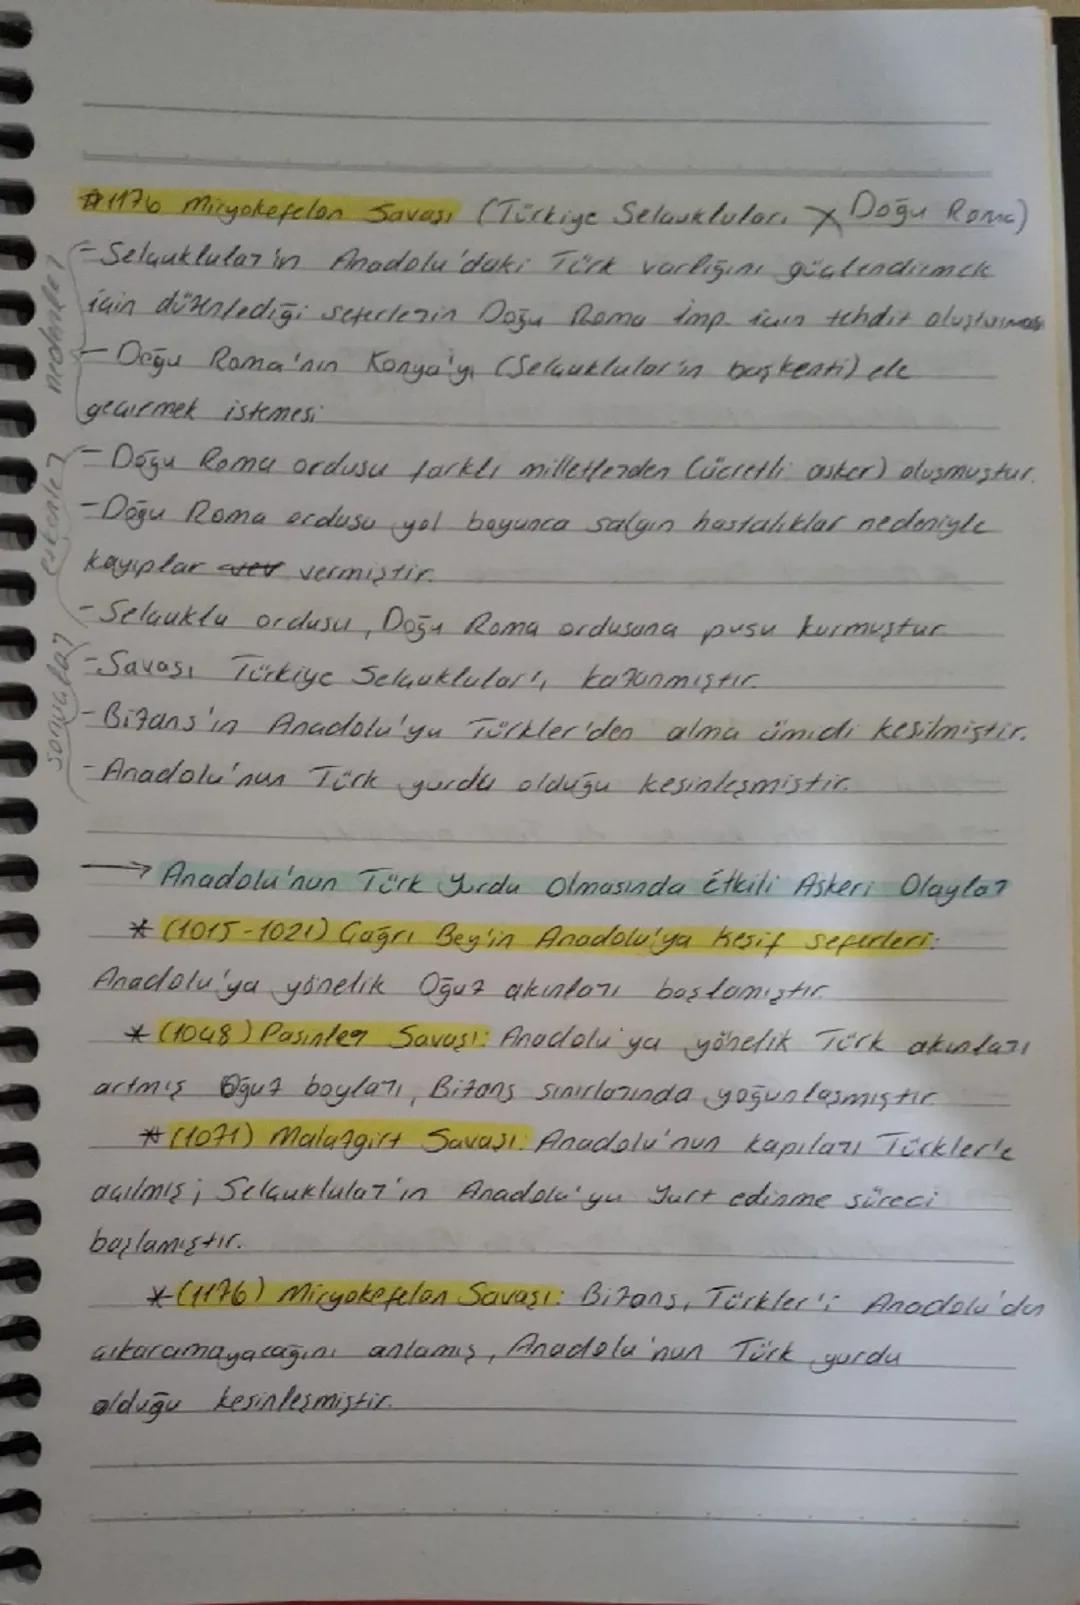 #1176 Miryokefelon Savaşı (Türkiye Selçukluları X Doğu Roma)
nedenler
-Selçuklular'ın Anadolu'daki Türk varlığını güçlendirmek
için düzenlediği seferlerin Doğu Roma imp. için tehdit oluşturması
-Doğu Roma'nın Konya'yı (Selçuklular'ın başkenti) ele
geçirmek istemesi
etkenler
-Doğu Roma ordusu farklı milletlerden (ücretli asker) oluşmuştur.
-Doğu Roma ordusu yol boyunca salgın hastalıklar nedeniyle
kayıplar vermiştir.
-Selçuklu ordusu, Doğu Roma ordusuna pusu kurmuştur.
sonuçlar
-Savaşı Türkiye Selçukluları, kazanmıştır.
-Bizans'ın Anadolu'yu Türkler'den alma ümidi kesilmiştir.
-Anadolu'nun Türk yurdu olduğu kesinleşmiştir.
→ Anadolu'nun Türk Yurdu Olmasında Etkili Askeri Olaylar
* (1015-1021) Çağrı Bey'in Anadolu'ya Keşif Seferleri:
Anadolu'ya yönelik Oğuz akınları başlamıştır.
* (1048) Pasinler Savaşı: Anadolu'ya yönelik Türk akınları
artmış Oğuz boyları, Bizans sınırlarında yoğunlaşmıştır.
* (1071) Malazgirt Savaşı: Anadolu'nun kapıları Türkler'e
açılmış; Selçuklular'ın Anadolu'yu Yurt edinme süreci
başlamıştır.
* (1176) Miryokefelon Savaşı: Bizans, Türkler'i Anadolu'dan
çıkaramayacağını anlamış, Anadolu'nun Türk yurdu
olduğu kesinleşmiştir.